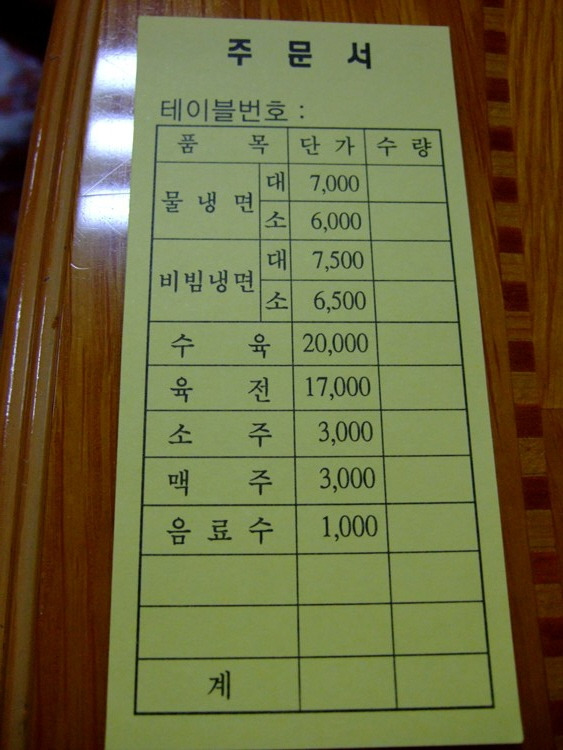 주 문 서
테이블번호 :
품 목 단 가 수 량
물 냉 면 대 7,000
소 6,000
비빔냉면 대 7,500
소 6,500
수 육 20,000
육 전 17,000
소 주 3,000
맥 주 3,000
음 료 수 1,000
계